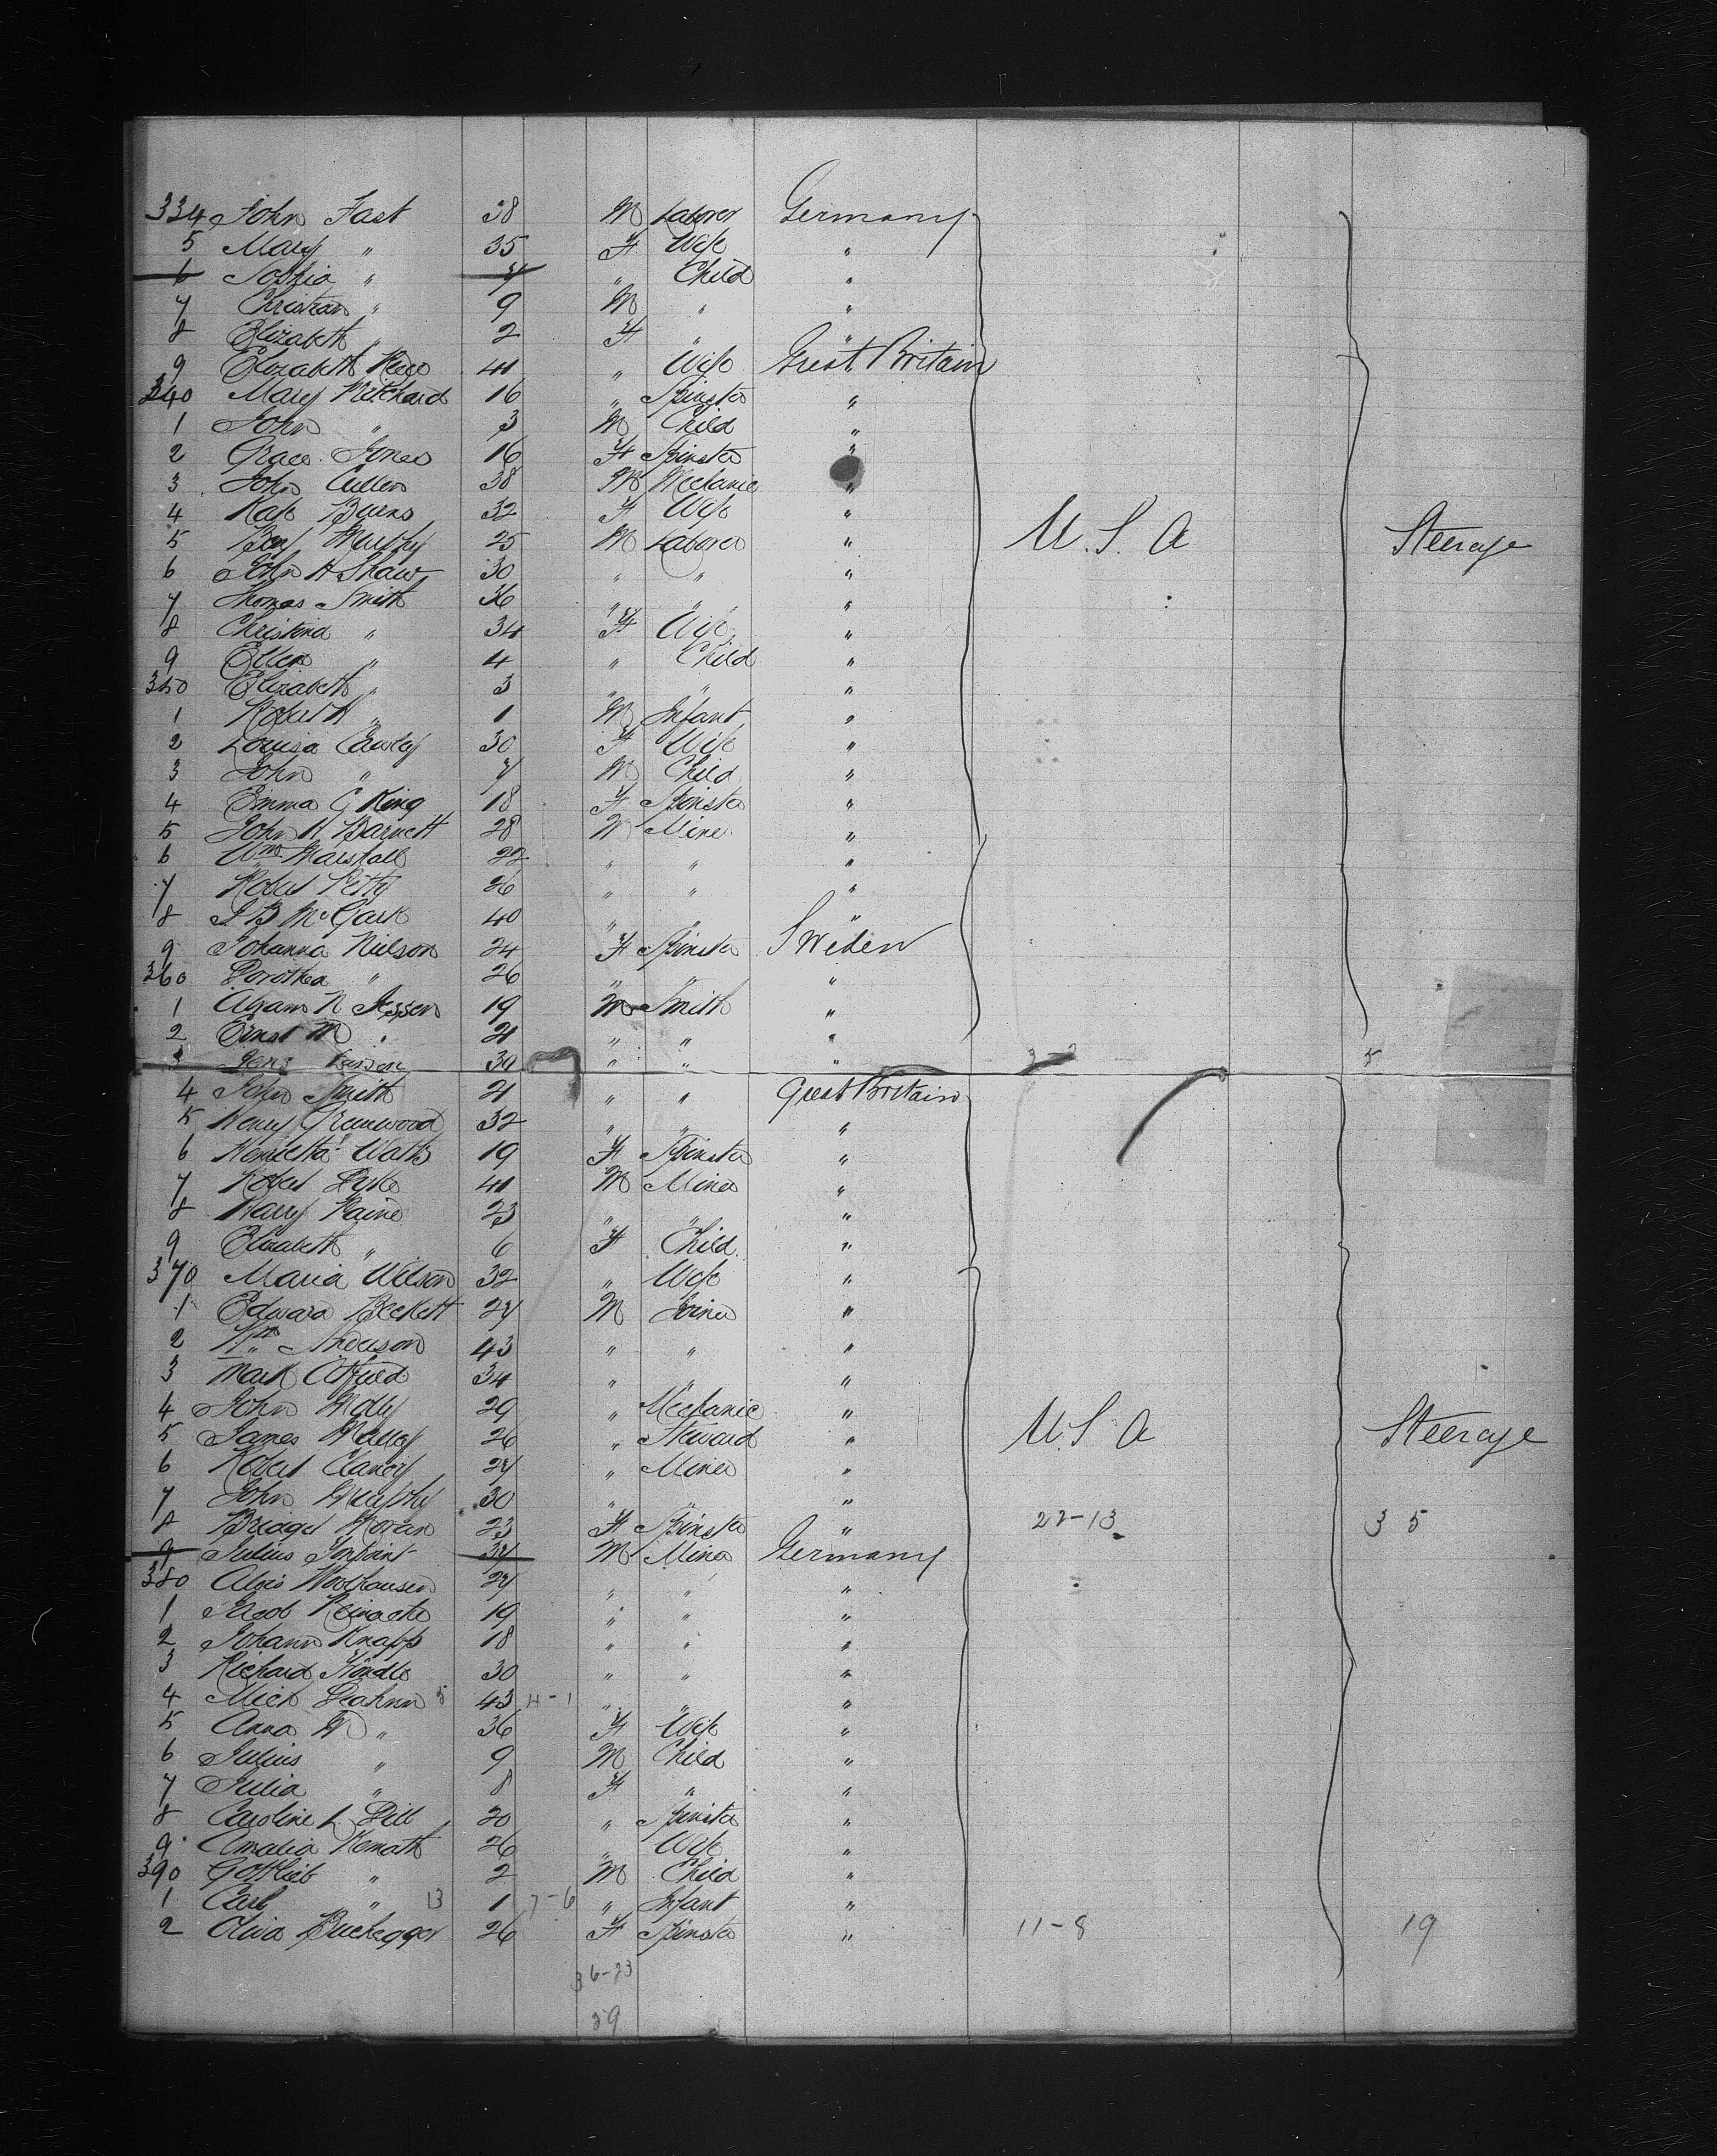 334 John Fast 38 M Laborer Germany
5 Mary " 35 F Wife "
6 Sophia " 7 " Child "
7 Christian " 9 M " "
8 Elizabeth " 2 F " "
9 Elizabeth 41 " Wife Great Britain
340 Mary Pritchard 16 " Spinster "
1 John " 3 M Child "
2 Grace Jones 16 F Spinster "
3 John Cullen 38 M Mechanic "
4 Kate Burns 32 F Wife "
5 Murphy 25 M Laborer " U. S. A Steerage
6 John H Shaw 30 " " "
7 Thomas Smith 36 " " "
8 Christina " 34 F Wife "
9 Ellen " 4 " Child "
350 Elizabeth " 3 " " "
1 Robert H " 1 M Infant "
2 Louisa Cawley 30 F Wife "
3 John " 7 M Child "
4 Emma G King 18 F Spinster "
5 John H Barnett 28 M Miner "
6 Wm Marshall 22 " " "
7 Robert Petty 26 " " "
8 40 " " "
9 Johanna Nielson 24 F Spinster Sweden
360 Dorothea " 26 " " "
1 Abram N Jessen 19 M Smith "
2 Ernst M " 21 " " "
3 Jens 30 " " " 5
4 John Smith 21 " " Great Britain
5 Henry Greenwood 32 " " "
6 Henrietta Watts 19 F Spinster "
7 Robert 41 M Miner "
8 Harry Raine 23 " " "
9 Elizabeth " 6 F Child "
370 Maria Wilson 32 " Wife "
1 Edward Beckett 27 M Joiner "
2 Anderson 43 " " "
3 Mark 34 " " "
4 John 29 " Mechanic " U. S. A Steerage
5 James 26 " Steward "
6 Robert Clancy 27 " Miner "
7 John Murphy 30 " " "
8 Bridget Moran 23 F Spinster " 22-13 35
9 Julius 37 M Miner Germany
380 Alois 27 " " "
1 Jacob 19 " " "
2 Johann Knapp 18 " " "
3 Richard 30 " " "
4 5 43 4-1 " " "
5 Anna " 36 F Wife "
6 Julius " 9 M Child "
7 Julia " 8 F " "
8 Caroline L Dill 20 " Spinster "
9 Amalia Kemath 26 " Wife "
390 Gottlieb " 2 M Child "
1 Carl " 13 1 7-6 " Infant "
2 Olivia Buchegger 26 F Spinster " 11-8 19
36-23
59